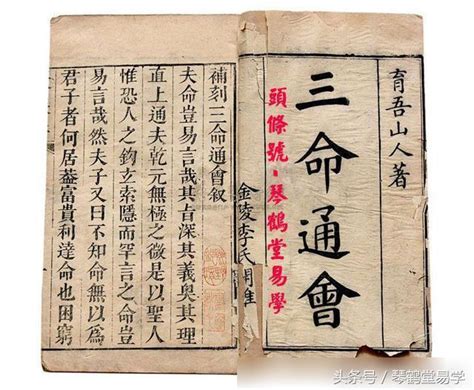 育吾山人著
三命通會
頭條號·琴鶴堂易學
金陵李氏
補刻三命通會叙
夫命豈易言哉其旨深其義奥其理
直上通夫乾元無極之微是以聖人
惟恐人之鉤玄索隱而罕言之命豈
易言哉然夫子又曰不知命無以為
君子者何居葢富貴利達命也困窮
头条号 / 琴鹤堂易学